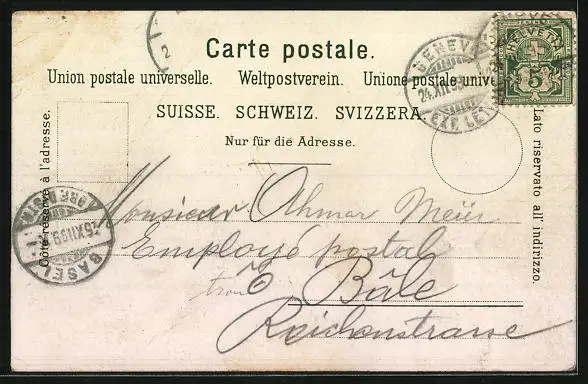 Carte postale.
Union postale universelle. Weltpostverein. Unione postale unive
SUISSE. SCHWEIZ. SVIZZERA.
Nur für die Adresse.
Côté réservé à l'adresse.
Lato riservato all' indirizzo.
HELVETIA
5
GENEVE
24.XII.98
EXP. LET
BASEL
26.XII.98
Monsieur Ahmar Meier
Employé postal
Bâle
Reichenstrasse